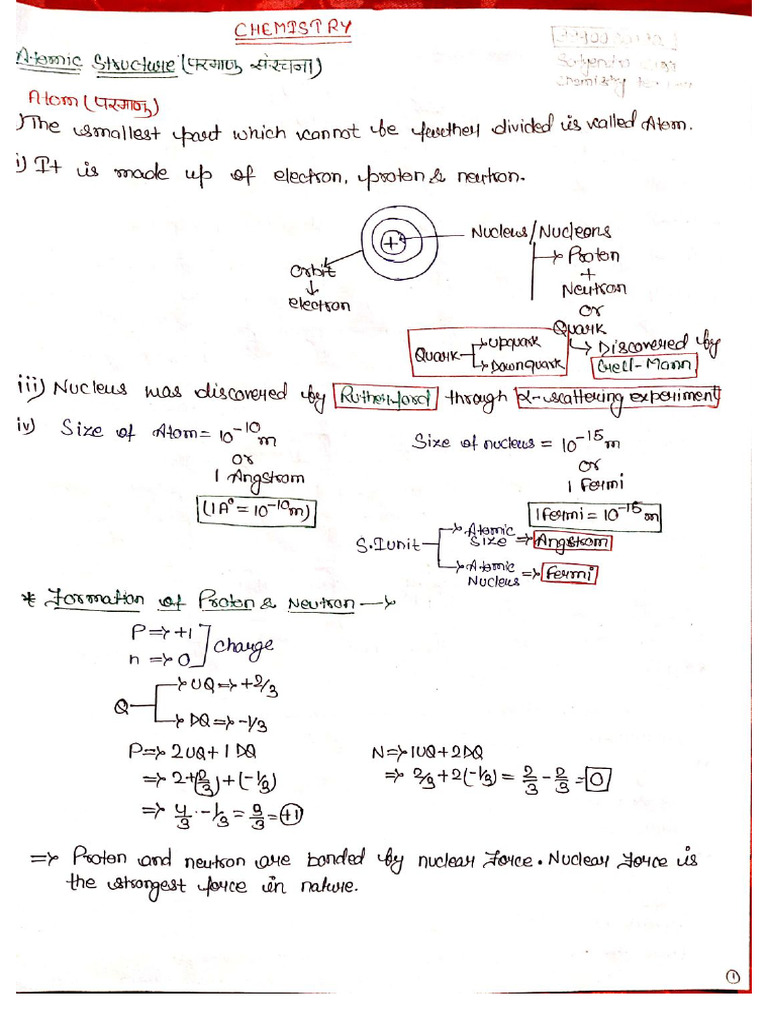 CHEMISTRY
Atomic Structure (परमाणु संरचना)
Atom (परमाणु)
i) The smallest part which cannot be further divided is called Atom.
i) It is made up of electron, proton & neutron.
+
Nucleus/Nucleons
Proton
+
Neutron
or
Quark
Orbit
↓
electron
Quark
Upquark
Downquark
Discovered by
Gell-Mann
iii) Nucleus was discovered by Rutherford through α-scattering experiment
iv) Size of Atom = 10⁻¹⁰ m
or
1 Angstrom
(1A° = 10⁻¹⁰ m)
Size of nucleus = 10⁻¹⁵ m
or
1 Fermi
1 Fermi = 10⁻¹⁵ m
S.I unit
Atomic Size ⇒ Angstrom
Atomic Nucleus ⇒ Fermi
* Formation of Proton & Neutron →
P ⇒ +1
n ⇒ 0
charge
Q
UQ ⇒ +2/3
DQ ⇒ -1/3
P ⇒ 2UQ + 1DQ
⇒ 2+(2/3) + (-1/3)
⇒ 4/3 - 1/3 = 3/3 = +1
N ⇒ 1UQ + 2DQ
⇒ 2/3 + 2(-1/3) = 2/3 - 2/3 = 0
⇒ Proton and neutron are bonded by nuclear force. Nuclear force is
the strongest force in nature.
1